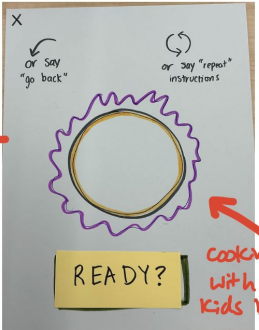 X
or say
"go back"
or say "repeat"
instructions
READY?
with
kids